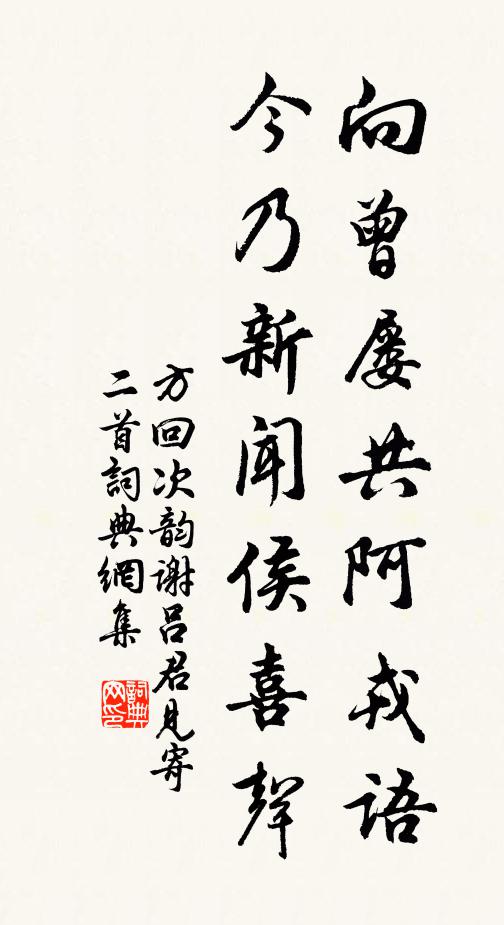 向曾屡共阿戎語
今乃新聞侯喜聲
方回次韵谢吕君見寄
二首詞典網集
詞典网印